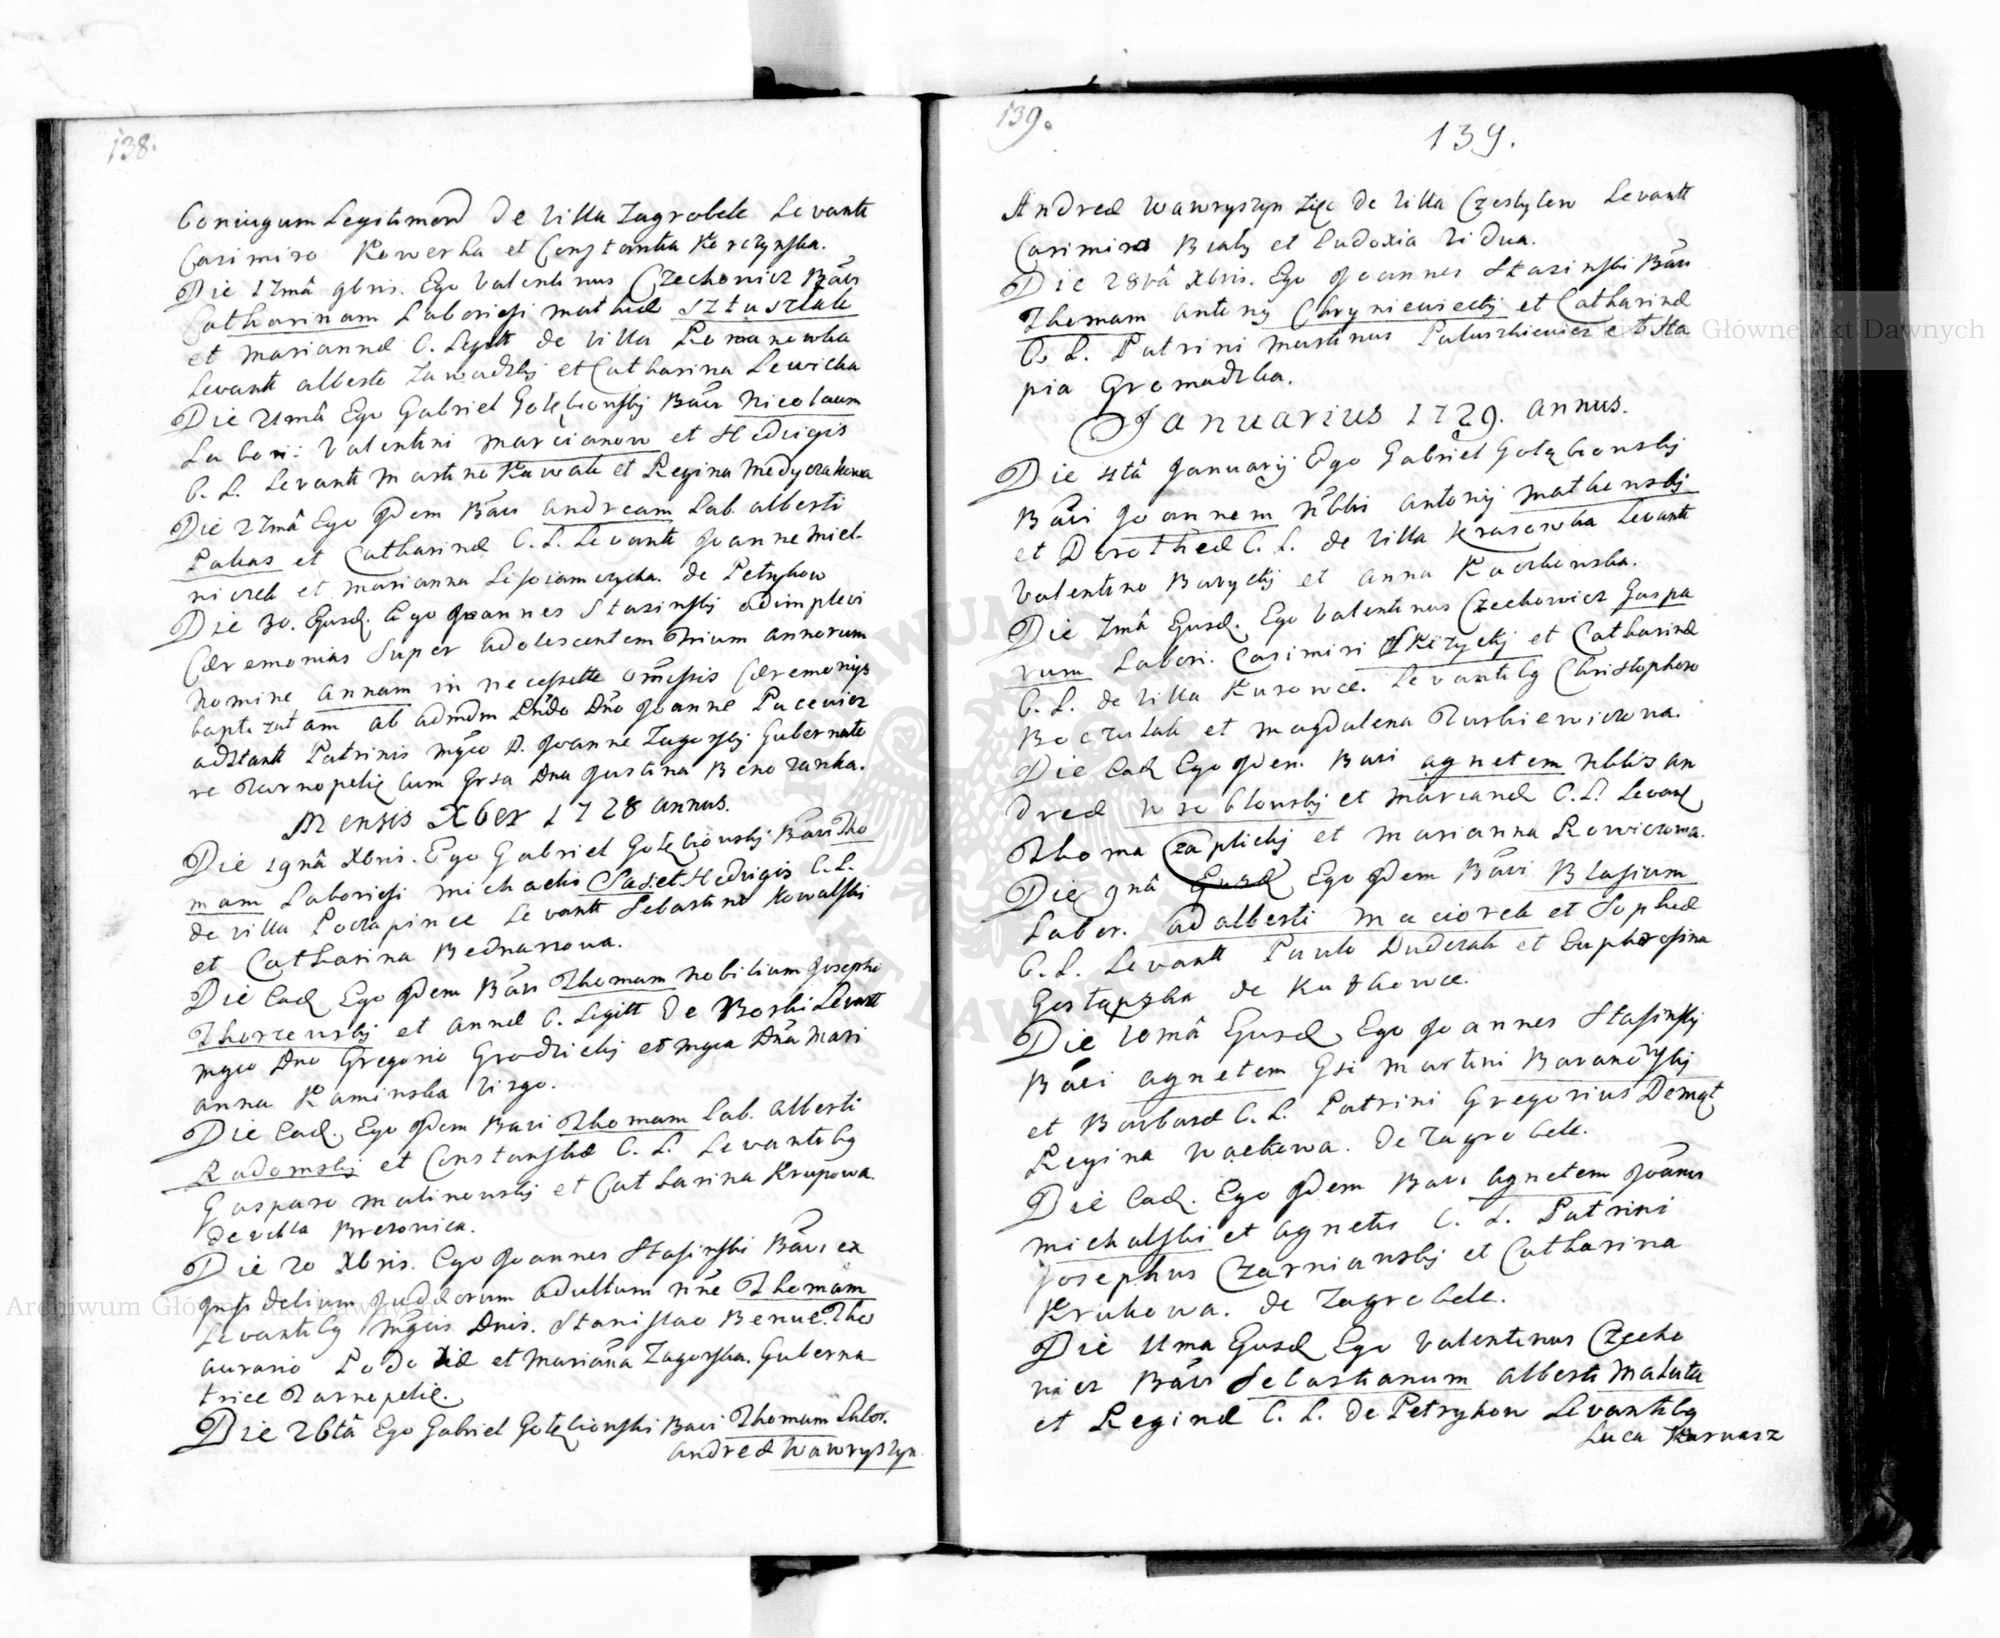 138.
Coniugum Legitimorū de Villa Zagrobele Levante
Casimiro Kowerka et Constantia Korczynska.
Die 17mâ 9bris. Ego Valentinus Czechowicz Bāvi
Catharinam Laboriosi Mathiæ Sztuszlak
et Mariannæ C. Legitt de Villa Romanowka
Levante Alberto Zawadzkij et Catharina Lewicka
Die 21mâ Ego Gabriel Gołębionskij Bāvi Nicolaum
Labori: Valentini Marcianow et Hedvigis
C. L. Levante Martino Kowale et Regina Medyczakowa
Die 27mâ Ego Idem Bāvi Andream Lab. Alberti
Palias et Catharinæ C. L. Levante Joanne Miel-
niczek et Marianna de Petrykow
Die 30. Eiusd. Ego Joannes Stasinskij adimplevi
Cæremonias Super adolescentem Trium annorum
Nomine Annam in necessitate omissis Cæremonijs
baptizatam ab admdm Rndo Dno Joanne Pacewicz
adstante Patrinis Mgco D. Joanne Zagorskij Gubernato
re Tarnopoliẹ cum Grsa Dna Justina Benozanka.
Mensis Xber 1728 annus.
Die 19nâ Xbris. Ego Gabriel Gołębiowskij Bāvi Tho
mam Laboriosi Michaelis Sas et Hedvigis C. L.
de Villa Poczapince Levante Sebastino Kowalski
et Catharina Bednarzowa.
Die Ead. Ego Idem Bāvi Thomam Nobilium Josephi
Thorzewskij et Annæ C. Legitt de Borki Levante
Mgco Dno Gregorio Grodzickij et Mgca Dna Mari
anna Kaminska Virgo.
Die Ead. Ego Idem Bavi Thomam Lab. Alberti
Radomskij et Constantiæ C. L. Levantibg
Gasparo Malinowskij et Catharina Krupowa.
de villa Brezovica.
Die 20 Xbris. Ego Joannes Stasinski Bāvi ex
Infidelium Judæorum adultum nn̄e Thomam
Levantibg Mgcis Dnis. Stanislao Benue. The
aurario Podoliæ et Mariāna Zagorska. Guberna-
trice Tarnopoliẹ.
Die 26tâ Ego Gabriel Gołębionski Bavi Thomam Labor.
Andreæ Wawryszyn.
139.
139.
Andreæ Wawryszyn de Villa Czestylow Levante
Casimiro Biały et Eudoxia Vidua.
Die 28vâ Xbris. Ego Joannes Stasinski Bāvi
Thomam Antonij Chryniewieckij et Catharinæ
C. L. Patrini Martinus Paluszkiewicz et Sta
pia Gromadzka.
Januarius 1729. annus.
Die 4tâ Januarij Ego Gabriel Gołębionskij
Bāvi Joannem Nbblis Antonij Mathonskij
et Dorotheæ C. L. de Villa Krasowka Levante
Valentino Baryckij et Anna Kaczkowska.
Die 7mâ Eiusd. Ego Valentinus Czechowicz Gaspa
rum Labori. Casimiri Krzyckij et Catharinæ
C. L. de Villa Kurowce. Levantibg Christophoro
Boczulak et Magdalena Turkiewiczowa.
Die Ead. Ego Idem. Bavi Agnetem Nbblis An
dreæ Wroblonskij et Marianæ C. L. Levant
Thoma Czaplickij et Marianna Rowiczowa.
Die 9nâ Eiusd. Ego Idem Bāvi Blasium
Labor. Adalberti Maciorek et Sophiæ
C. L. Levante Paulo Duderak et Euphrosina
Gostapska de Kutkowce.
Die 10mâ Eiusd. Ego Joannes Stasinskij
Bāvi Agnetem Gsi Martini Baranowskij
et Barbaræ C. L. Patrini Gregorius Demąt
Regina Wackowa. de Zagrobele.
Die Ead. Ego Idem Bavi Agnetem Joānis
Michalski et Agnetis C. L. Patrini
Josephus Czarnianskij et Catharina
Krukowa. de Zagrobele.
Die 11ma Eiusd. Ego Valentinus Czecho
wicz Bāvi Sebastianum Alberti Malata
et Reginæ C. L. de Petrykow Levantibg
Luca Karwasz